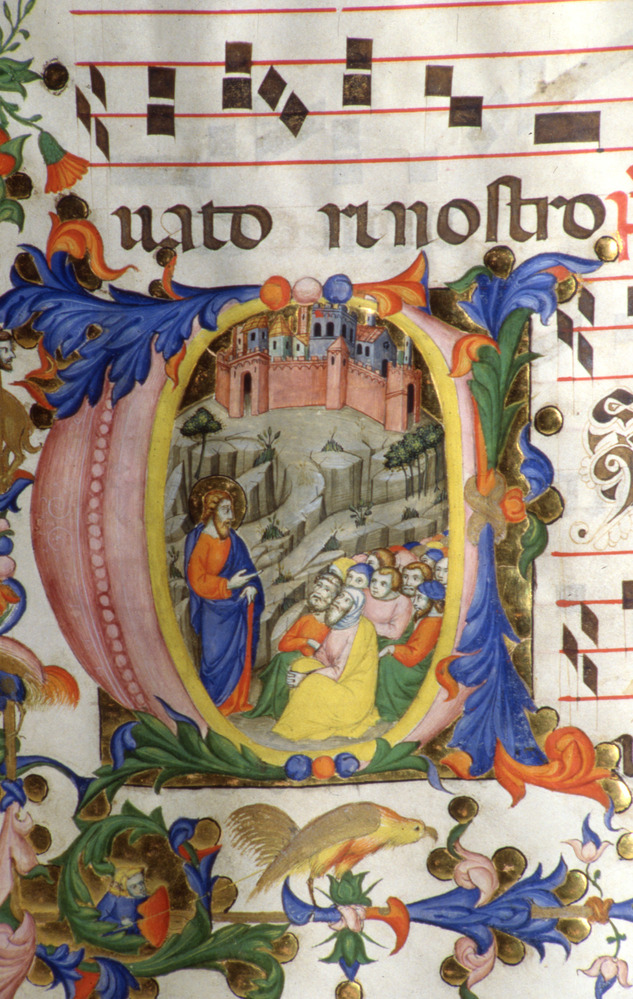 uato ri nostro